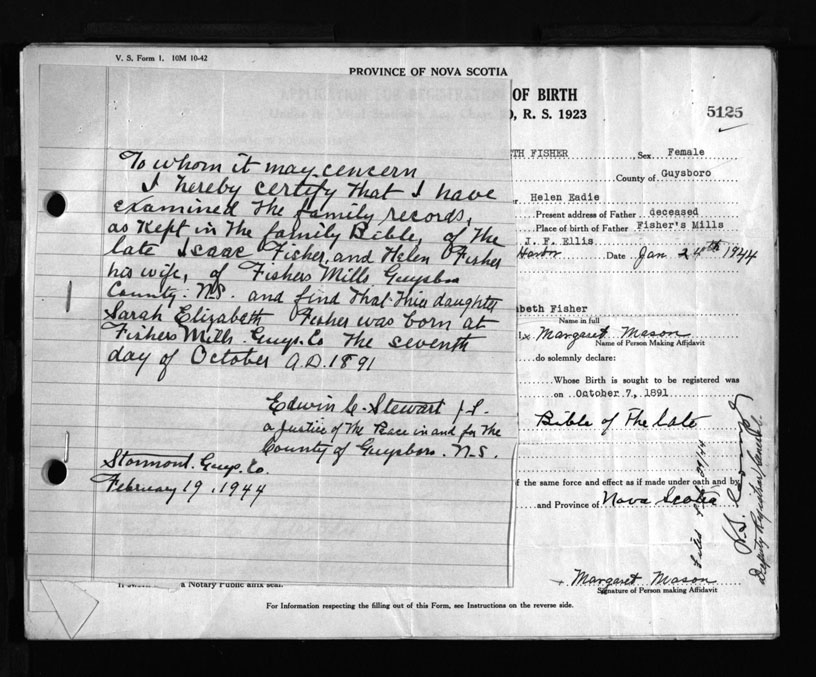 V. S. Form 1. 10M 10-42
PROVINCE OF NOVA SCOTIA
OF BIRTH
, R. S. 1923
5125
To whom it may concern
I hereby certify that I have
examined the family records,
as kept in the family Bible, of the
late Isaac Fisher, and Helen Fisher
his wife, of Fishers Mills Guysboro
County. N.S. and find that their daughter
Sarah Elizabeth Fisher was born at
Fishers Mills. Guys. Co the seventh
day of October A.D. 1891
Edwin C. Stewart J.P.
a justice of the Peace in and for the
County of Guysboro. N.S.
Stormont. Guys. Co.
February 19, 1944
TH FISHER Sex Female
County of Guysboro
Helen Eadie
Present address of Father deceased
Place of birth of Father Fisher's Mills
J. F. Ellis
Harbor Date Jan. 24th 1944
abeth Fisher
Name in full
Margaret Mason
Name of Person Making Affidavit
do solemnly declare:
Whose Birth is sought to be registered was
on October 7, 1891
Bible of the late
of the same force and effect as if made under oath and by
and Province of Nova Scotia
Deputy Registrar General.
a Notary Public affix seal.
Margaret Mason
Signature of Person making Affidavit
For Information respecting the filling out of this Form, see Instructions on the reverse side.